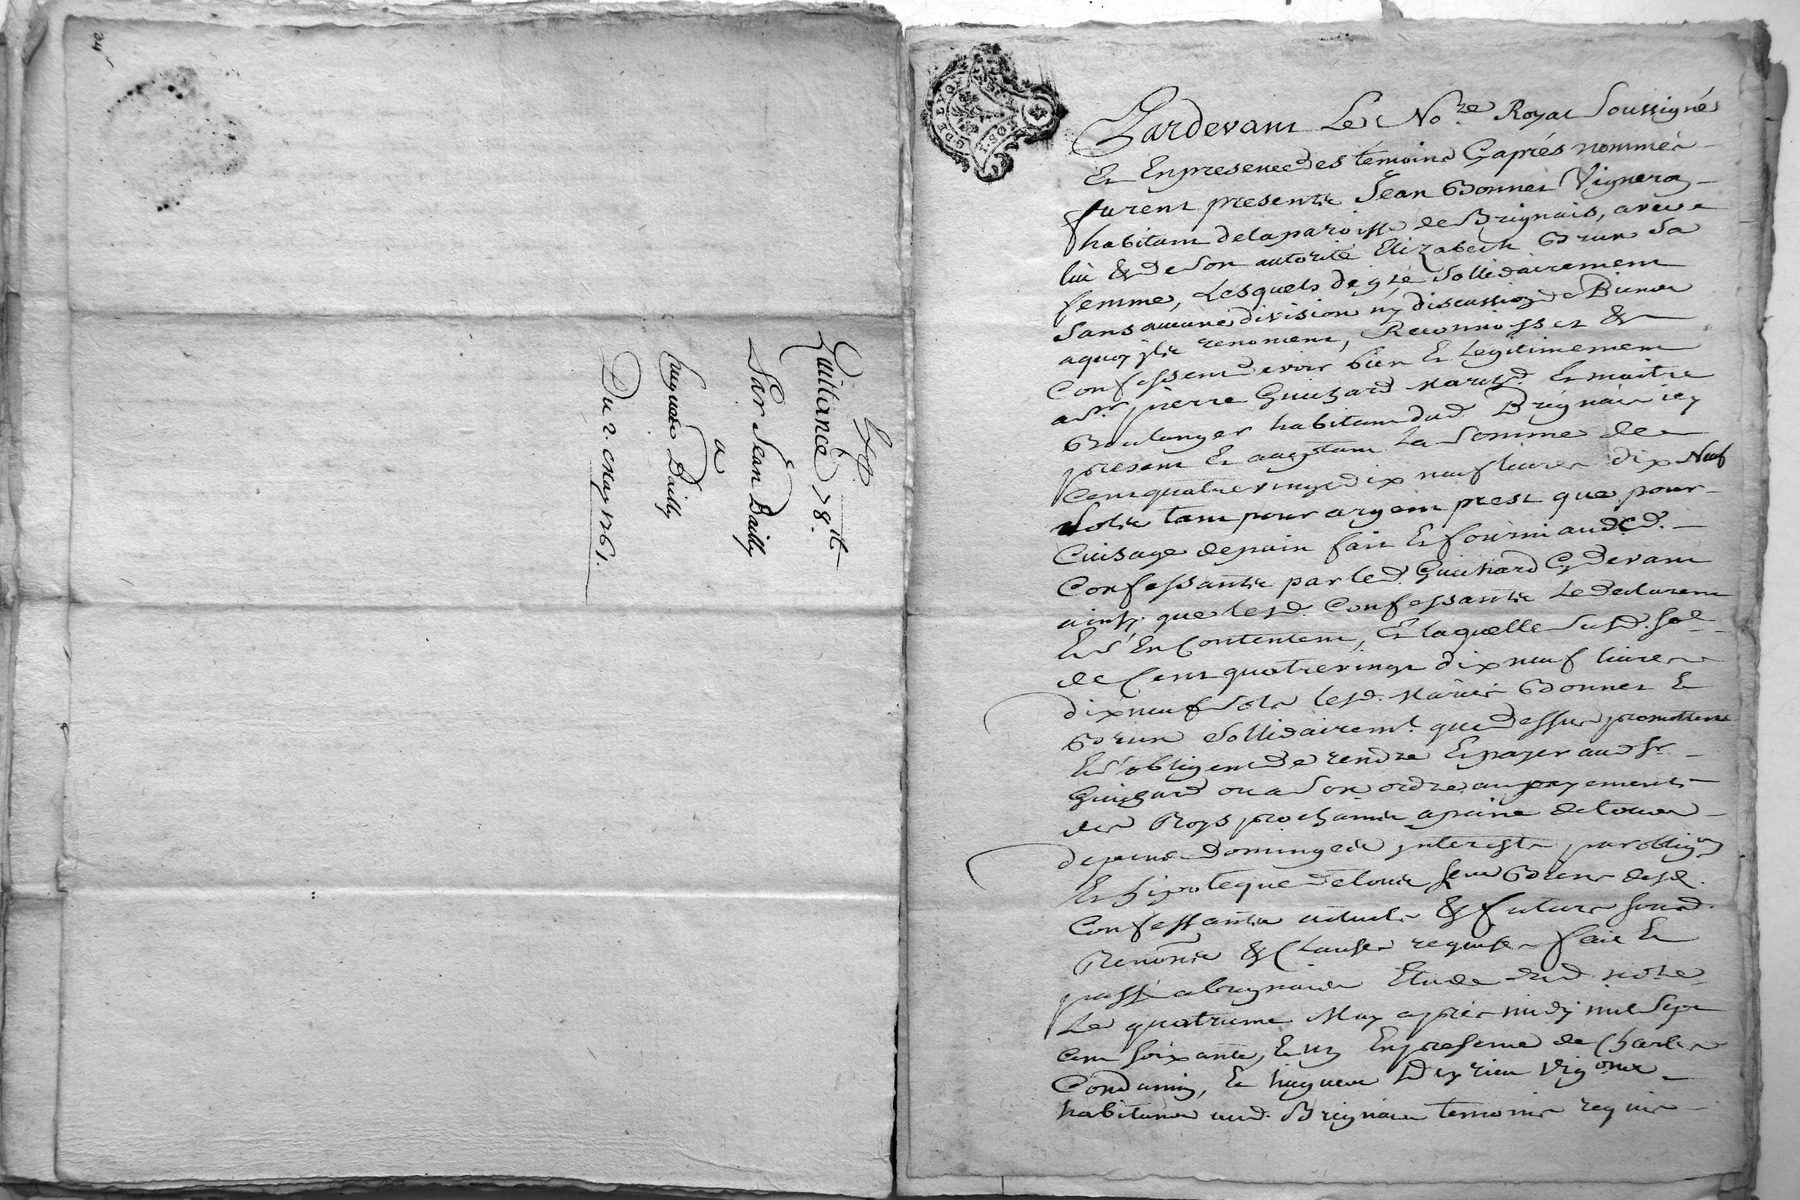 34
Exp
Quittance 78.tt
Par Jean Bailly
a
hugues Bailly
Du 2. may 1761.
G. DE LYON
Pardevant Le No.re Royal Soussigné
Et En presence des temoins Cy aprés nommés
furent presents Jean Bonnet Vigneron
habitant de la paroisse de Brignais, avec
lui & de Son autorité Elizabeth Brun Sa
femme, Lesquels de gré Sollidairement
Sans aucune division ny discussion de Biens
a quoy ils renoncent, Reconnoissent &
Confessent devoir bien Et Legitimement
a Sr. pierre Guichard March.d Et maitre
Boulanger habitant dud. Brignais icy
present Et acceptant La Somme de
Cent quatre vingt dix neuf livres dix Neuf
Sols tant pour argent prest que pour
Cuisage de pain fait Et fourni aud.
Confessants par led. Guichard Cy devant
ainsy que lesd. Confessants Le declarent
Et s'En Contentent, Et laquelle Susd. So.e
de Cent quatre vingt dix neuf livres
dix neuf Sols lesd. Mariés Bonnet Et
Brun Sollidairem.t que dessus promettent
Et s'obligent de rendre Et payer aud. Sr.
Guichard ou a Son ordre au payement
des Roys prochains a peine de tous
depens Dominges interests par oblig.on
Et hipoteque de tous Leurs Biens desd.
Confessants actuels & futurs Soumd.
Renoncé & Clauses requises fait Et
passé a Brignais Etude dud. no.re
Le quatrieme May aprés midy mil Sept
cent Soixante, Et un En presence de Charles
Condamin, Et hugues Deyrieu Vignerons
habitants aud. Brignais temoins requis